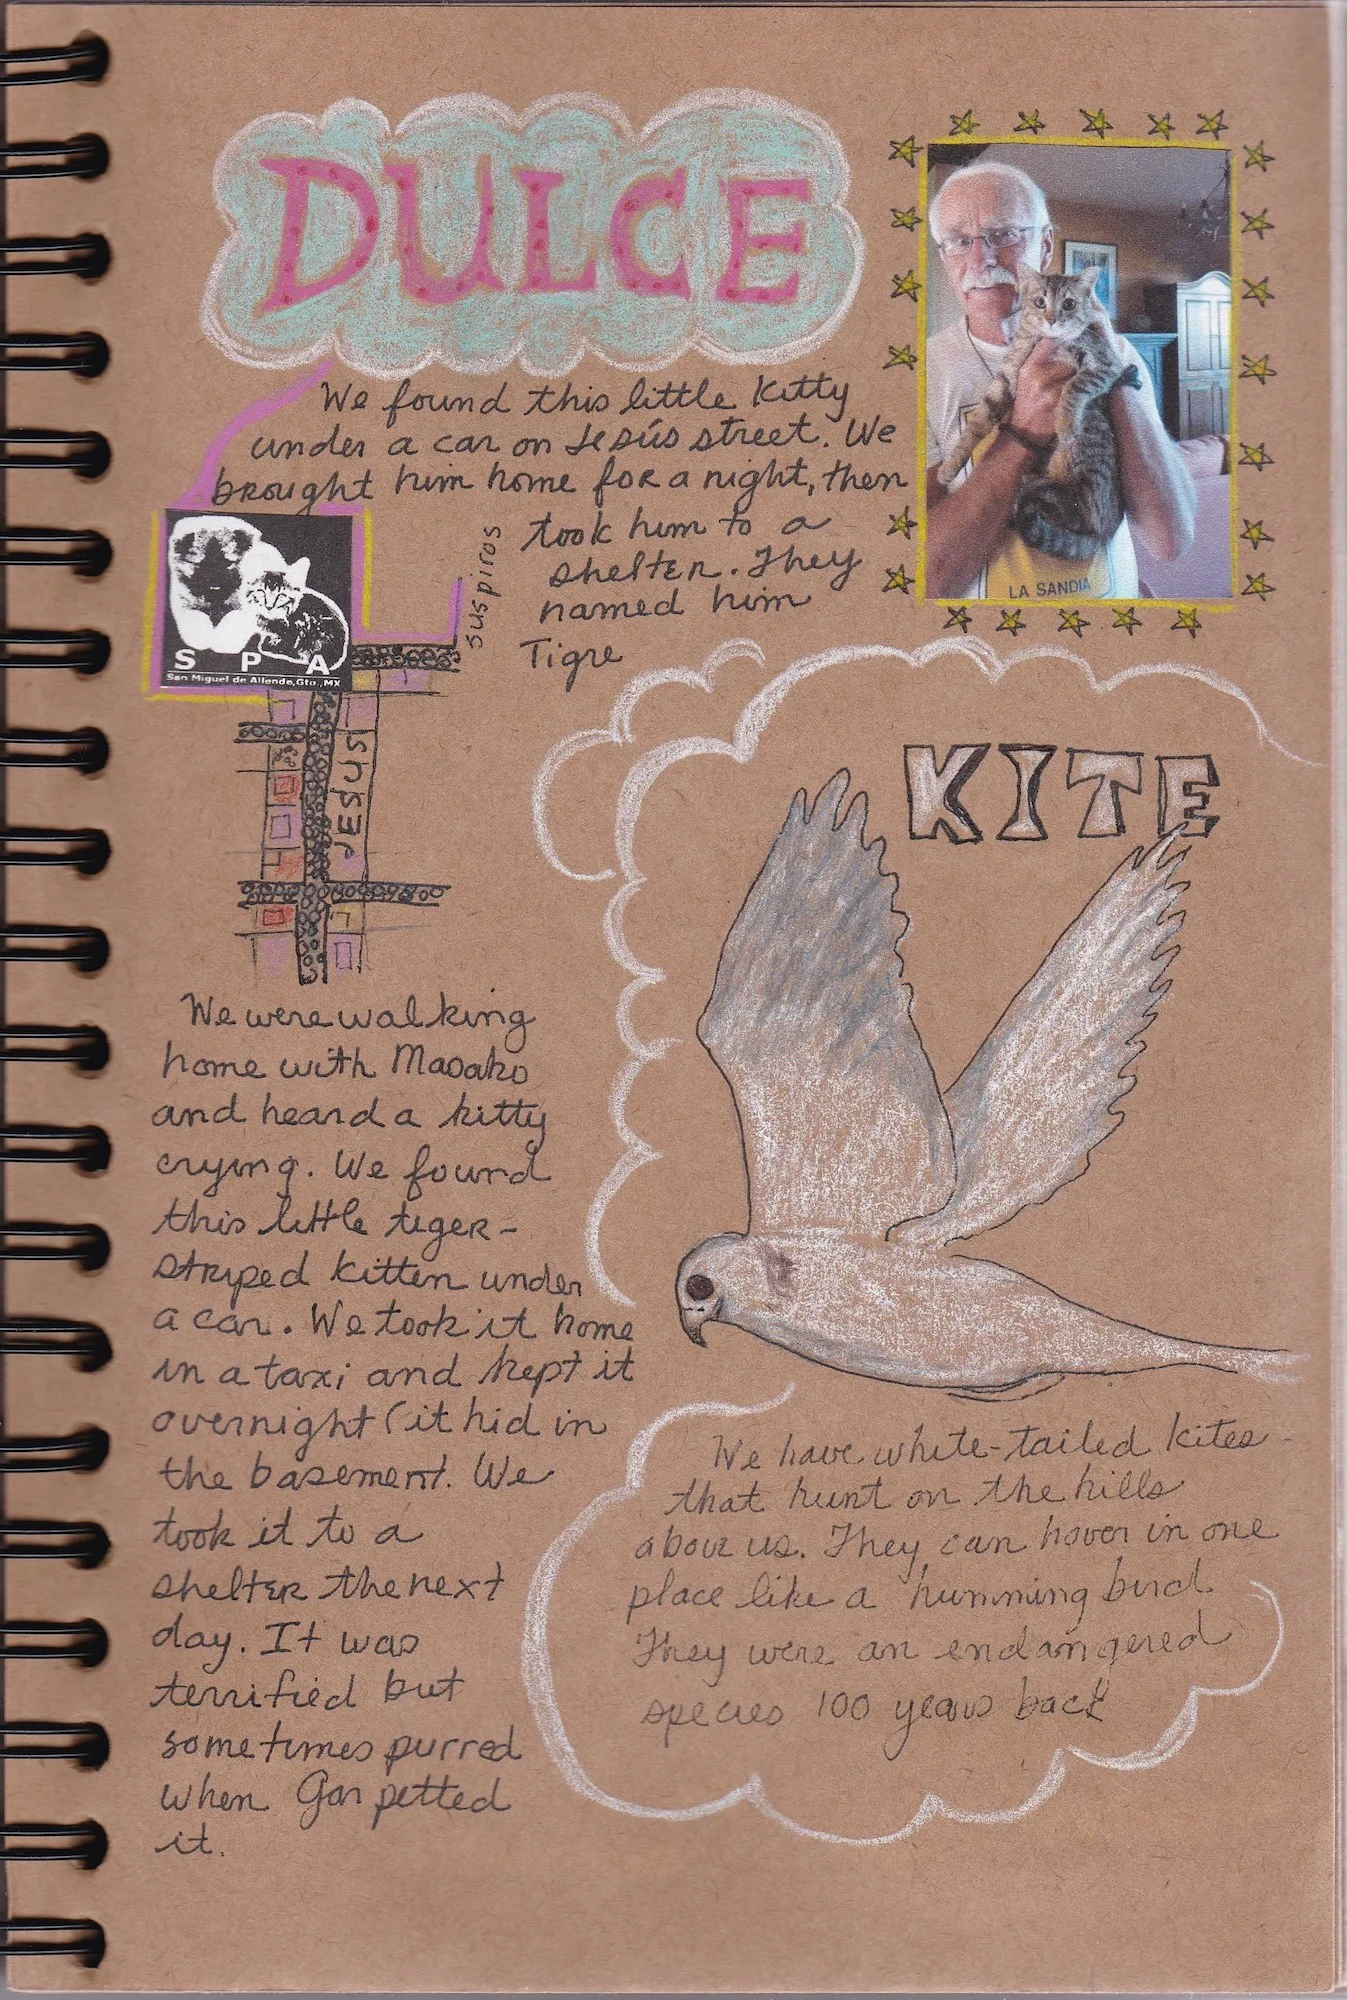 DULCE
We found this little Kitty
under a car on Jesús street. We
brought him home for a night, then
took him to a
shelter. They
named him
Tigre
LA SANDIA
S P A
San Miguel de Allende, Gto., MX
suspiros
JESUS
We were walking
home with Masako
and heard a kitty
crying. We found
this little tiger-
striped kitten under
a car. We took it home
in a taxi and kept it
overnight (it hid in
the basement. We
took it to a
shelter the next
day. It was
terrified but
sometimes purred
when Gar petted
it.
KITE
We have white-tailed kites
that hunt on the hills
above us. They can hover in one
place like a humming bird.
They were an endangered
species 100 years back